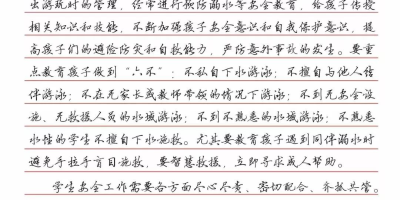 出游玩时的管理，经常进行预防溺水等安全教育，给孩子传授
相关知识和技能，不断加强孩子安全意识和自我保护意识，提
高孩子们的避险防灾和自救能力，严防意外事故的发生。要重
点教育孩子做到“六不”：不私自下水游泳；不擅自与他人结
伴游泳；不在无家长或教师带领的情况下游泳；不到无安全设
施、无救援人员的水域游泳；不到不熟悉的水域游泳；不熟悉
水性的学生不擅自下水施救。尤其要教育孩子遇到同伴溺水时
避免手拉手盲目施救，要智慧救援，立即寻求成人帮助。
学生安全工作需要各方面尽心尽责、密切配合、齐抓共管。